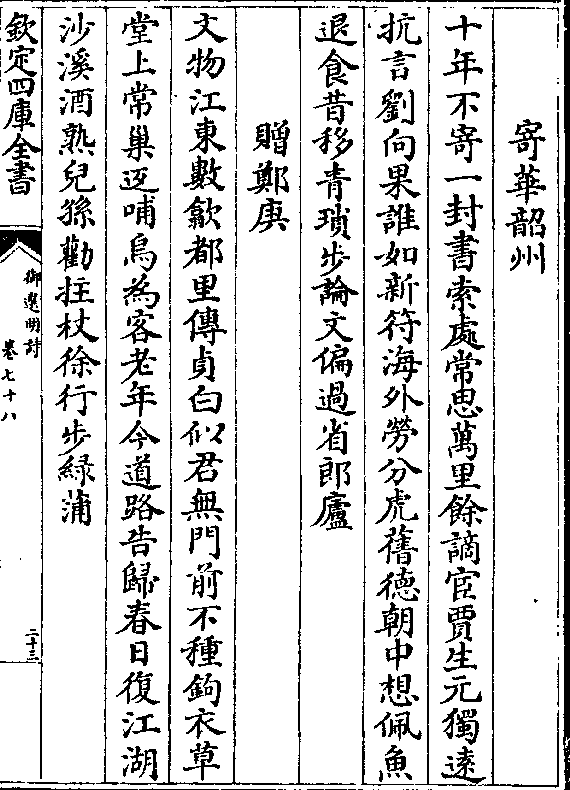 寄華韶州
十年不寄一封書索處常思萬里餘謫宦賈生元獨遠
抗言劉向果誰如新符海外勞分虎舊德朝中想佩魚
退食昔移青瑣步論文偏過省郎廬
贈鄭庚
文物江東數歙都里傳貞白似君無門前不種鉤衣草
堂上常巢返哺烏為客老年今道路告歸春日復江湖
沙溪酒熟兒孫勸拄杖徐行步綠蒲
欽定四庫全書
御選明詩
卷七十八
二十三